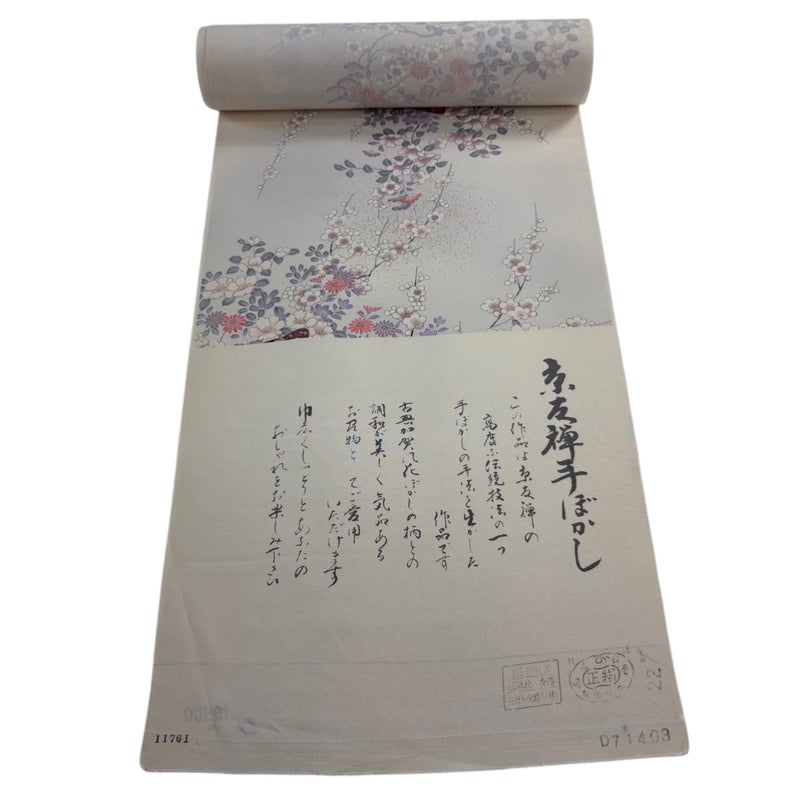 京友禅手ぼかし
この作品は京友禅の
高度な伝統技法の一つ
手ぼかしの手法を生かした
作品です
古典加賀花ぼかしの柄との
調和が美しく気品ある
お召物としてご愛用
いただけます
巾広くしっとりとあなたの
おしゃれをお楽しみ下さい
正絹
22
11761
D71403